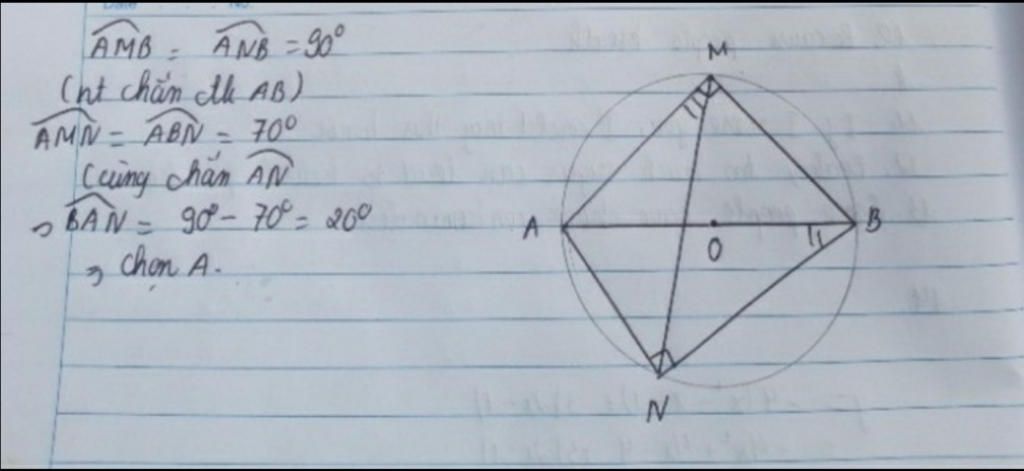 Date No.
AMB = ANB = 90°
(nt chắn đk AB)
AMN = ABN = 70°
(cùng chắn AN
⇒ BAN = 90° - 70° = 20°
⇒ chọn A.
M
A
B
O
N